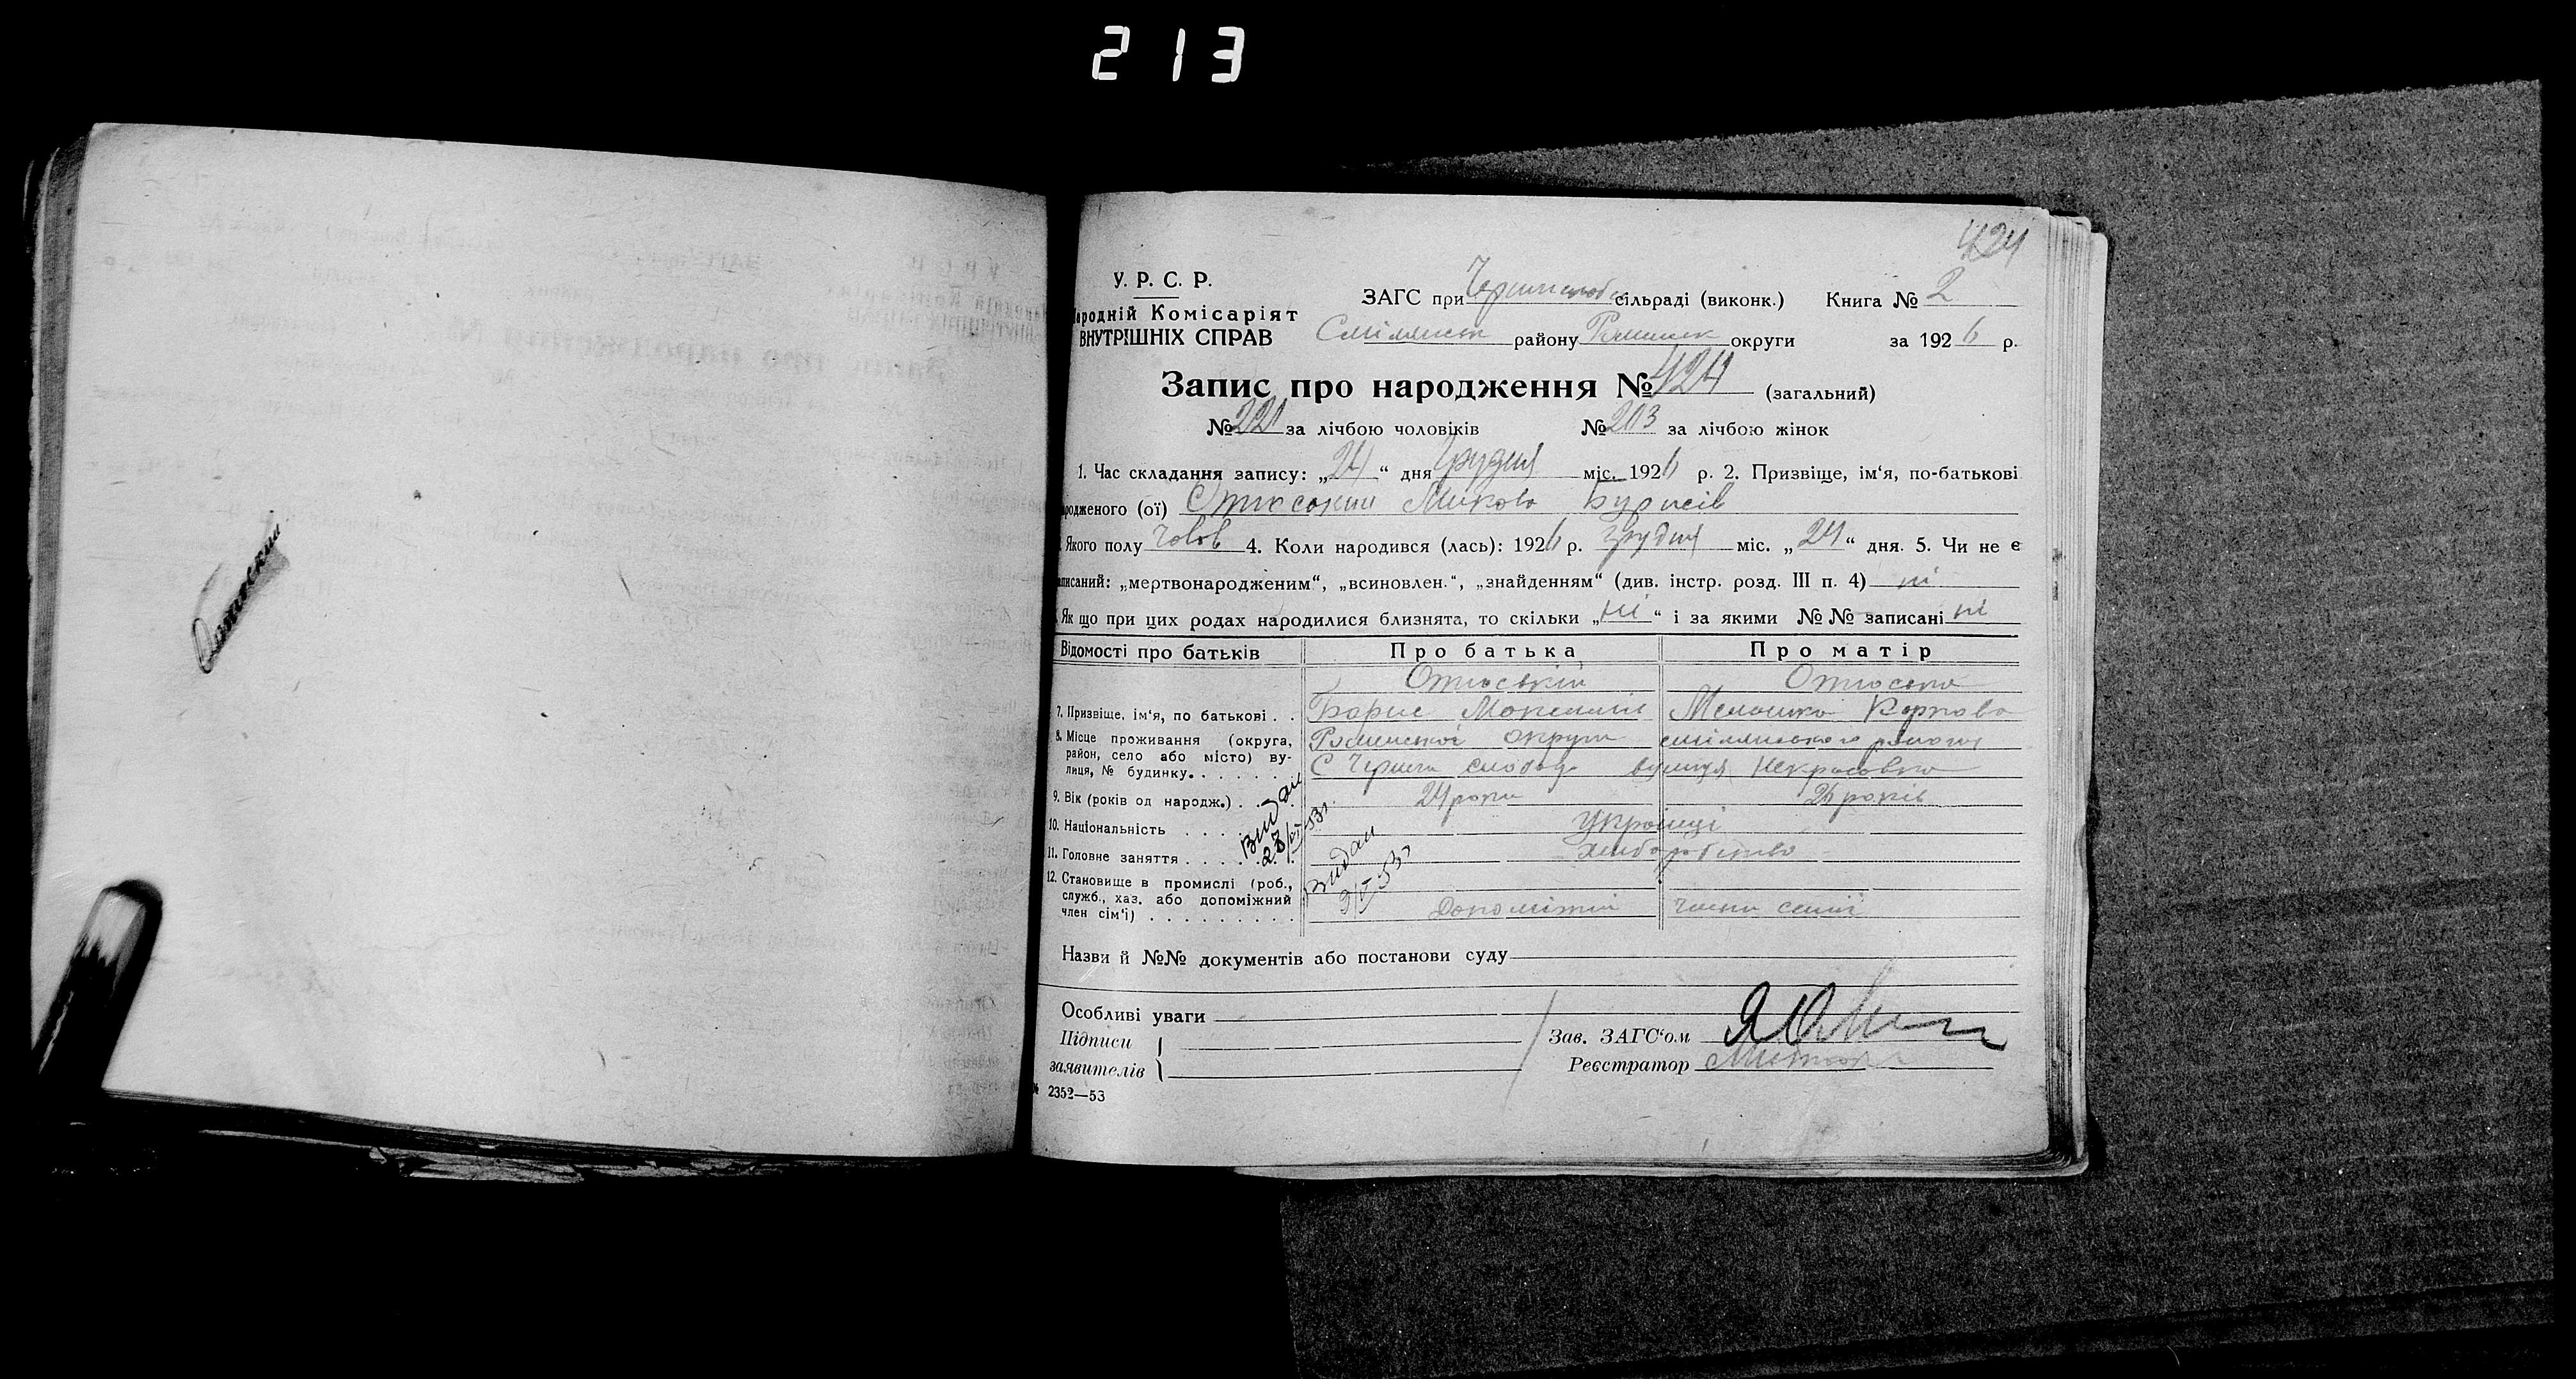 213
424
У. Р. С. Р.
ародній Комісаріят
ВНУТРІШНІХ СПРАВ
ЗАГС при сільраді (виконк.) Книга № 2
Смілянськ району Роменськ округи за 1926 р.
Запис про народження № 424 (загальний)
№ 221 за лічбою чоловіків № 203 за лічбою жінок
1. Час складання запису: „24“ дня Грудня міс. 1926 р. 2. Призвіще, ім‘я, по-батькові
родженого (ої) Микола Борисів
Якого полу Чолов 4. Коли народився (лась): 1926 р. Грудня міс. „24“ дня. 5. Чи не є
аписаний: „мертвонародженим“, „всиновлен.“, „знайденням“ (див. інстр. розд. III п. 4) ні
Як що при цих родах народилися близнята, то скільки „ні“ і за якими №№ записані ні
Відомості про батьків Про батька Про матір
7. Призвіще, ім‘я, по батькові . . Борис Мелашка Карпова
8. Місце проживання (округа, район, село або місто) вулиця, № будинку. Роменської округи смілянського району
С Черша слобода вулиця Некрасовка
9. Вік (років од народж.) . . . 24 роки 26 років
10. Національність . . . Українці
11. Головне заняття . . . хліборобство
12. Становище в промислі (роб., служб., хаз. або допоміжний член сім‘ї) . . . Допоміжні члени семії
Видан
28/VI 53г.
Видан
3/V 53г
Назви й №№ документів або постанови суду
Особливі уваги
Підписи заявителів
Зав. ЗАГС‘ом
Реєстратор
№ 2352—53